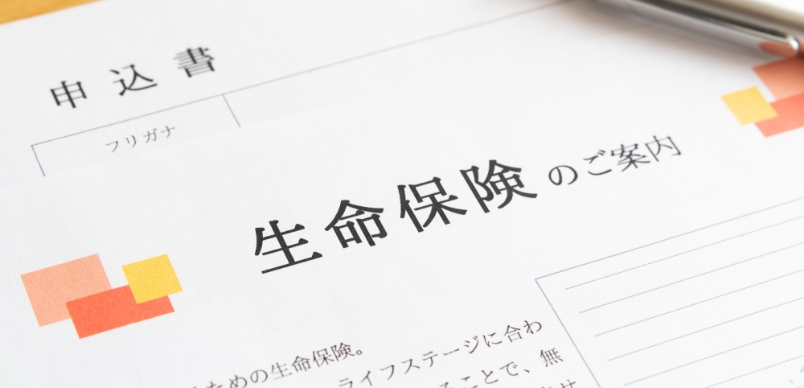 申込書
フリガナ
生命保険のご案内
ための生命保険。
ライフステージに合わ
ることで、無